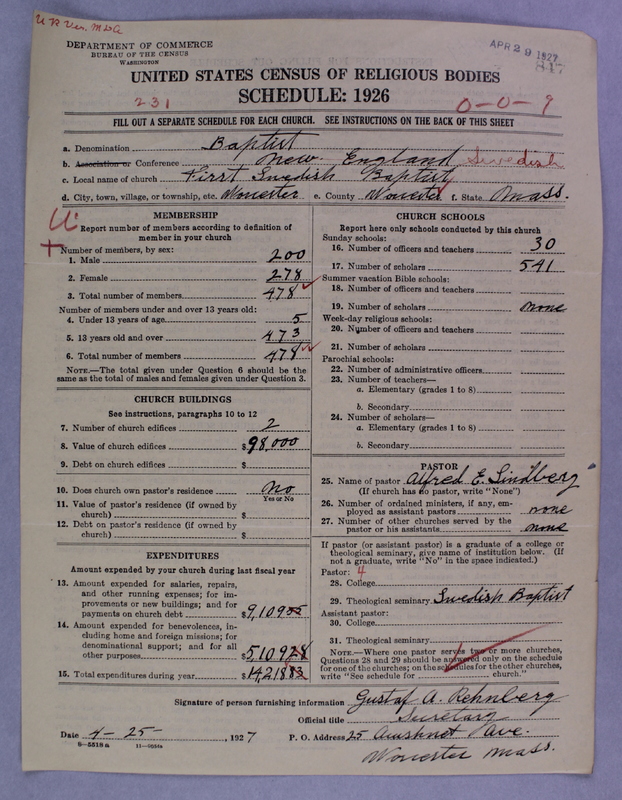 U B Ver. MDA
DEPARTMENT OF COMMERCE
BUREAU OF THE CENSUS
WASHINGTON
APR 29 1927
817
UNITED STATES CENSUS OF RELIGIOUS BODIES
SCHEDULE: 1926
231
0-0-9
FILL OUT A SEPARATE SCHEDULE FOR EACH CHURCH. SEE INSTRUCTIONS ON THE BACK OF THIS SHEET
a. Denomination Baptist
b. Association or Conference New England Swedish
c. Local name of church First Swedish Baptist
d. City, town, village, or township, etc. Worcester e. County Worcester f. State Mass.
MEMBERSHIP
Report number of members according to definition of
member in your church
Number of members, by sex:
1. Male 200
2. Female 278
3. Total number of members 478
Number of members under and over 13 years old:
4. Under 13 years of age 5
5. 13 years old and over 473
6. Total number of members 478
NOTE.—The total given under Question 6 should be the
same as the total of males and females given under Question 3.
CHURCH BUILDINGS
See instructions, paragraphs 10 to 12
7. Number of church edifices 2
8. Value of church edifices $98,000
9. Debt on church edifices $
10. Does church own pastor's residence No
Yes or No
11. Value of pastor's residence (if owned by
church) $
12. Debt on pastor's residence (if owned by
church) $
EXPENDITURES
Amount expended by your church during last fiscal year
13. Amount expended for salaries, repairs,
and other running expenses; for im-
provements or new buildings; and for
payments on church debt $9,109
14. Amount expended for benevolences, in-
cluding home and foreign missions; for
denominational support; and for all
other purposes $5,109
15. Total expenditures during year $14,218
CHURCH SCHOOLS
Report here only schools conducted by this church
Sunday schools:
16. Number of officers and teachers 30
17. Number of scholars 541
Summer vacation Bible schools:
18. Number of officers and teachers
19. Number of scholars none
Week-day religious schools:
20. Number of officers and teachers
21. Number of scholars
Parochial schools:
22. Number of administrative officers
23. Number of teachers—
a. Elementary (grades 1 to 8)
b. Secondary
24. Number of scholars—
a. Elementary (grades 1 to 8)
b. Secondary
PASTOR
25. Name of pastor Alfred E. Lindberg
(If church has no pastor, write "None")
26. Number of ordained ministers, if any, em-
ployed as assistant pastors none
27. Number of other churches served by the
pastor or his assistants none
If pastor (or assistant pastor) is a graduate of a college or
theological seminary, give name of institution below. (If
not a graduate, write "No" in the space indicated.)
Pastor: 4
28. College
29. Theological seminary Swedish Baptist
Assistant pastor:
30. College
31. Theological seminary
NOTE.—Where one pastor serves two or more churches,
Questions 28 and 29 should be answered only on the schedule
for one of the churches; on the schedules for the other churches,
write "See schedule for church."
Signature of person furnishing information Gustaf A. Rehnberg
Official title Secretary
Date 4-25-, 1927 P. O. Address 25 Acushnet Ave.
8-5518a 11-9954a
Worcester Mass.